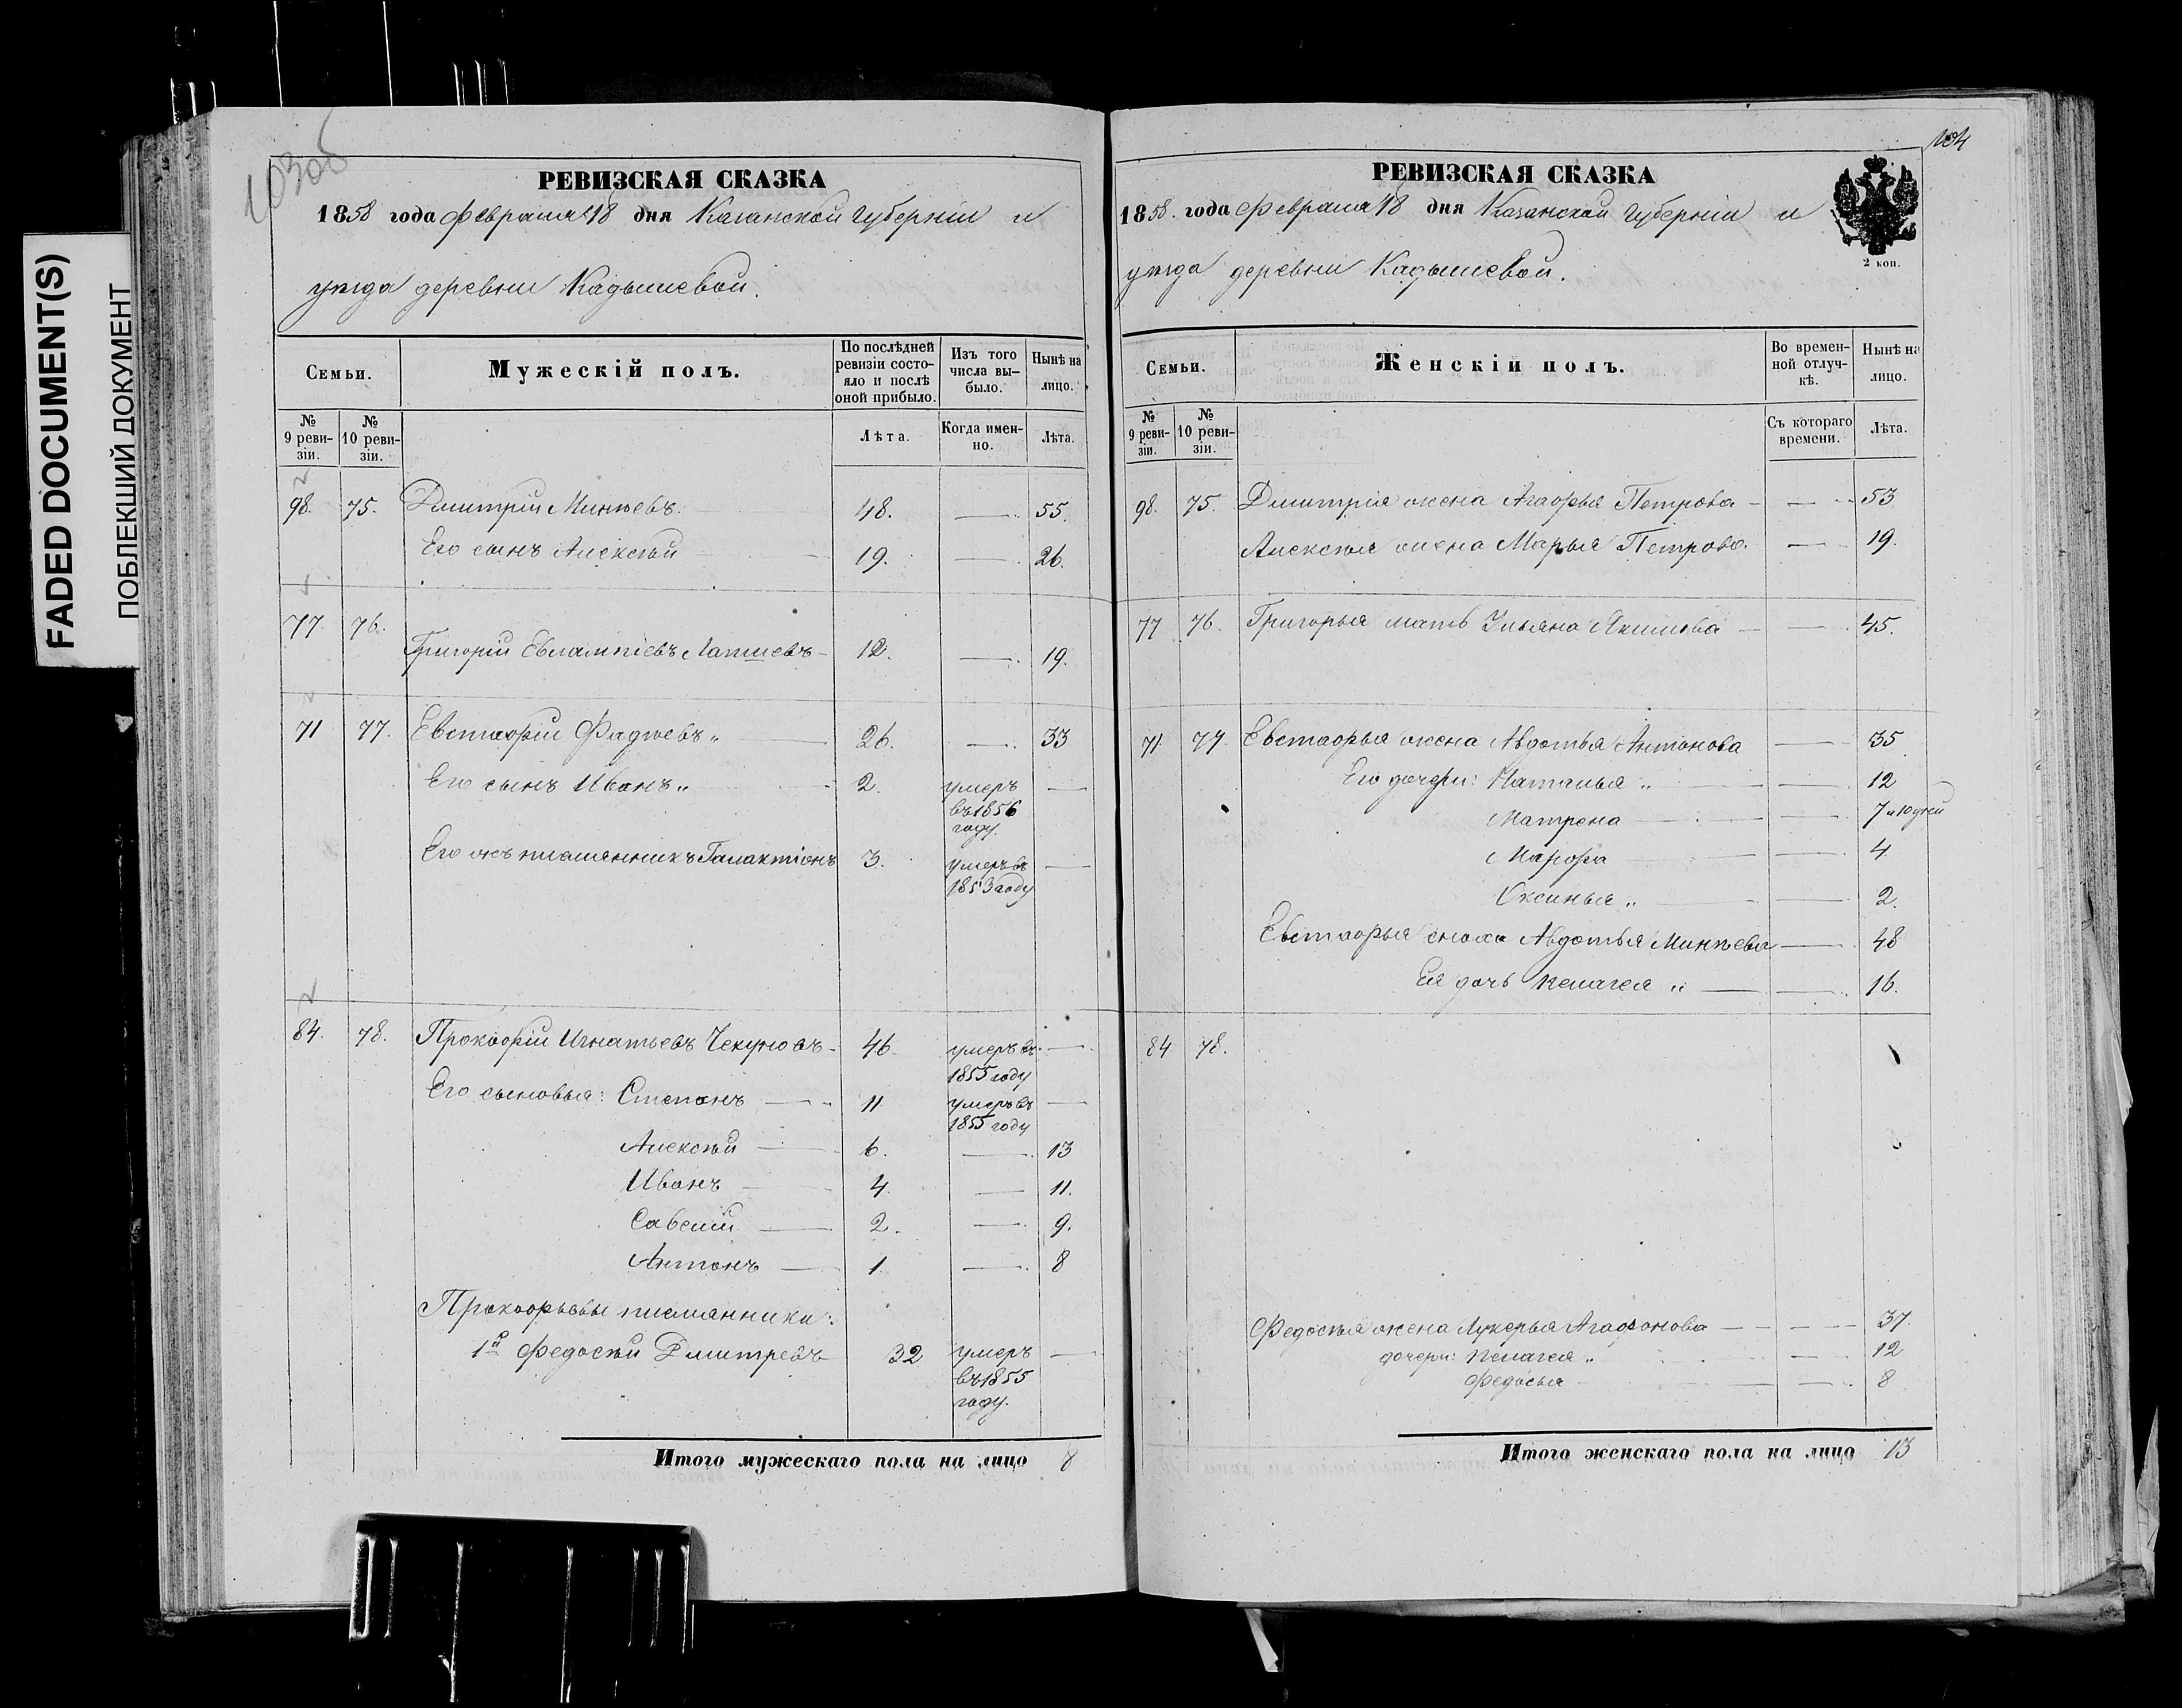 FADED DOCUMENT(S)
ПОБЛЕКШИЙ ДОКУМЕНТ
103об
РЕВИЗСКАЯ СКАЗКА
1858 года Февраля 18 дня Казанской Губерніи и
уѣзда деревни Кадышевой.
Семьи.
Мужескій полъ.
По послѣдней ревизіи состояло и послѣ оной прибыло.
Изъ того числа выбыло.
Нынѣ на лицо.
№ 9 ревизіи.
№ 10 ревизіи.
Лѣта.
Когда именно.
Лѣта.
98. 75. Дмитрій Минѣевъ. 48. — 55.
Его сынъ Алексѣй 19. — 26.
77. 76. Григорій Евлампіевъ Лапшевъ 12. — 19.
71 77. Евстафій Фадѣевъ „ 26. — 33
Его сынъ Иванъ „ 2. умеръ въ 1856 году. —
Его жъ племянникъ Галактіонъ 3. умеръ въ 1853 году —
84. 78. Прокофій Игнатьевъ Чекуновъ 46 умеръ въ 1855 году —
Его сыновья: Степанъ — 11 умеръ въ 1855 году —
Алексѣй — 6. — 13
Иванъ — 4. — 11.
Савелій — 2. — 9.
Антонъ — 1. — 8
Прокофьевы племянники:
1й Федосѣй Дмитревъ 32 умеръ въ 1855 году. —
Итого мужескаго пола на лицо 8
104
РЕВИЗСКАЯ СКАЗКА
1858. года Февраля 18 дня Казанской Губерніи и
уѣзда деревни Кадышевой.
2 коп.
Семьи.
Женскій полъ.
Во временной отлучкѣ.
Нынѣ на лицо.
№ 9 ревизіи.
№ 10 ревизіи.
Съ котораго времени.
Лѣта.
98. 75. Дмитрія жена Агафья Петрова — 53
Алексѣя жена Марья Петрова. — 19.
77 76. Григорья мать Ульяна Якимова — 45.
71 77. Евстафья жена Авдотья Антонова — 35
Его дочери: Наталья „ — 12
Матрена — 7 и 10 дней
Марфа — 4
Оксинья „ — 2.
Евстафья сноха Авдотья Минѣева — 48
Ея дочь Пелагея „ — 16.
84 78.
Федосѣя жена Лукерья Агафонова — 37.
дочери: Пелагея „ — 12
Федосья — 8
Итого женскаго пола на лицо 13